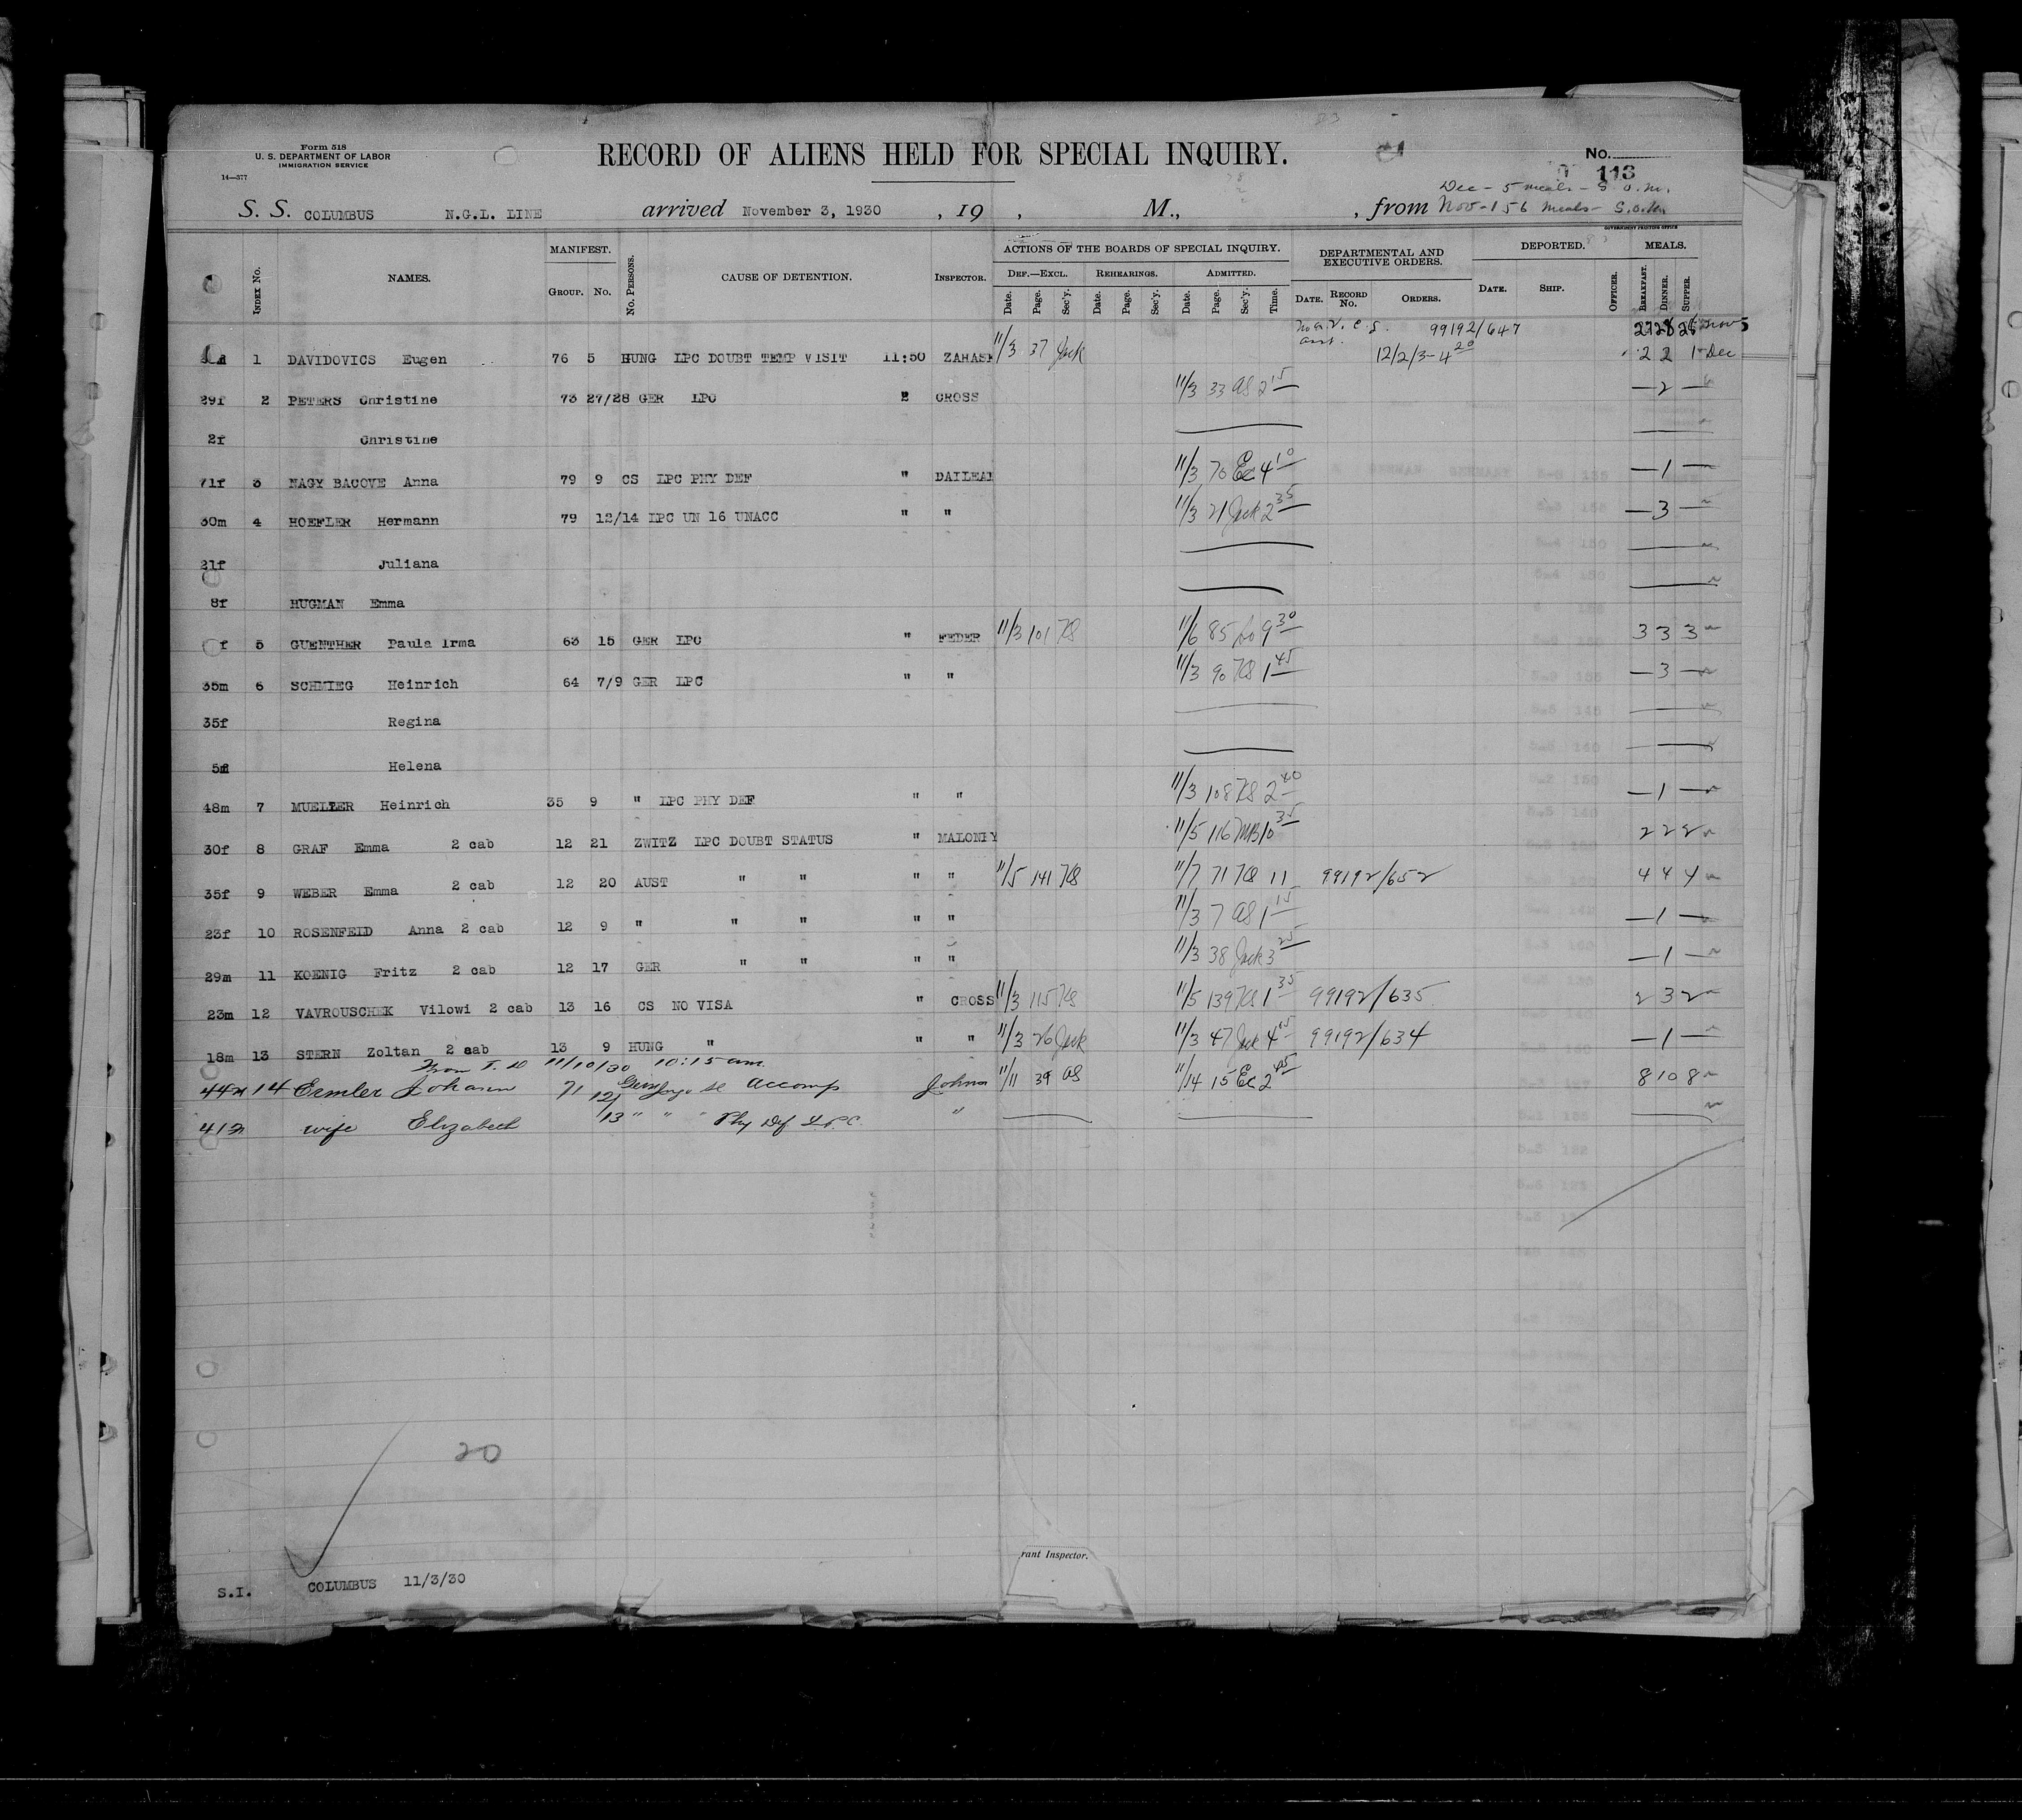 Form 518
U. S. DEPARTMENT OF LABOR
IMMIGRATION SERVICE
14—377
RECORD OF ALIENS HELD FOR SPECIAL INQUIRY.
No.
113
Dec - 5 meals - S.O.M.
S. S. COLUMBUS N.G.L. LINE arrived November 3, 1930 , 19 , M., , from Nov - 156 meals - S.O.M.
GOVERNMENT PRINTING OFFICE
INDEX No. NAMES. MANIFEST. GROUP. No. No. PERSONS. CAUSE OF DETENTION. INSPECTOR. ACTIONS OF THE BOARDS OF SPECIAL INQUIRY. DEPARTMENTAL AND EXECUTIVE ORDERS. DEPORTED. MEALS.
DEF.—EXCL. REHEARINGS. ADMITTED.
Date. Page. Sec'y. Date. Page. Sec'y. Date. Page. Sec'y. Time. DATE. RECORD No. ORDERS. DATE. SHIP. OFFICER. BREAKFAST. DINNER. SUPPER.
99192/647 27 28 26 Nov
1 DAVIDOVICS Eugen 76 5 HUNG LPC DOUBT TEMP VISIT 11:50 ZAHASK 11/3 37 Jack 12/2/3- 4 20 2 2 1 Dec
29f 2 PETERS Christine 73 27/28 GER LPC " CROSS 11/3 33 AS 2 15 — 2 —
2f Christine
71f 3 NAGY BACOVE Anna 79 9 CS LPC PHY DEF " DAILEAD 11/3 70 Ec 4 10 — 1 —
30m 4 HOEFLER Hermann 79 12/14 LPC UN 16 UNACC " " 11/3 21 Jack 2 35 — 3 —
21f Juliana
8f HUGMAN Emma
f 5 GUENTHER Paula Irma 63 15 GER LPC " FEDER 11/3 101 KS 11/6 85 Lo 9 30 3 3 3
35m 6 SCHMIEG Heinrich 64 7/9 GER LPC " " 11/3 90 KS 1 45 — 3 —
35f Regina
5f Helena
48m 7 MUELLER Heinrich 35 9 " LPC PHY DEF " " 11/3 108 KS 2 40 — 1 —
30f 8 GRAF Emma 2 cab 12 21 ZWITZ LPC DOUBT STATUS " MALONEY 11/5 116 MB 10 35 2 2 2
35f 9 WEBER Emma 2 cab 12 20 AUST " " " " 11/5 141 KS 11/7 71 KS 11 99192/652 4 4 4
23f 10 ROSENFELD Anna 2 cab 12 9 " " " " " 11/3 7 AS 1 15 — 1 —
29m 11 KOENIG Fritz 2 cab 12 17 GER " " " " 11/3 38 Jack 3 25 — 1 —
23m 12 VAVROUSCHEK Vilowi 2 cab 13 16 CS NO VISA " CROSS 11/3 115 KS 11/5 139 KS 1 35 99192/635 2 3 2
18m 13 STERN Zoltan 2 cab 13 9 HUNG " " " 11/3 26 Jack 11/3 47 Jack 4 45 99192/634 — 1 —
From T. D 11/10/30 10:15 am.
44m 14 Ermler Johann 71 12/ accomp Johnson 11/11 39 AS 11/14 15 Ec 2 45 8 10 8
41 wife Elizabeth /13 " " " Phy Def L.P.C. "
20
rant Inspector.
S.I. COLUMBUS 11/3/30